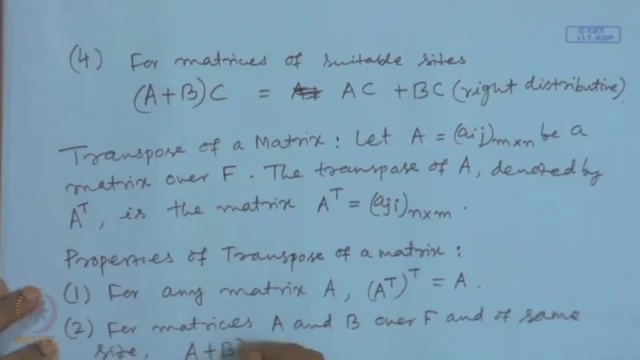 © CET
I.I.T. KGP
(4) For matrices of suitable sizes
(A+B)C = AC + BC (right distributive)
Transpose of a Matrix : Let A = (aij)m×n be a
matrix over F. The transpose of A, denoted by
A^T, is the matrix A^T = (aji)n×m.
Properties of Transpose of a matrix :
(1) For any matrix A, (A^T)^T = A.
(2) For matrices A and B over F and of same
size, A+B